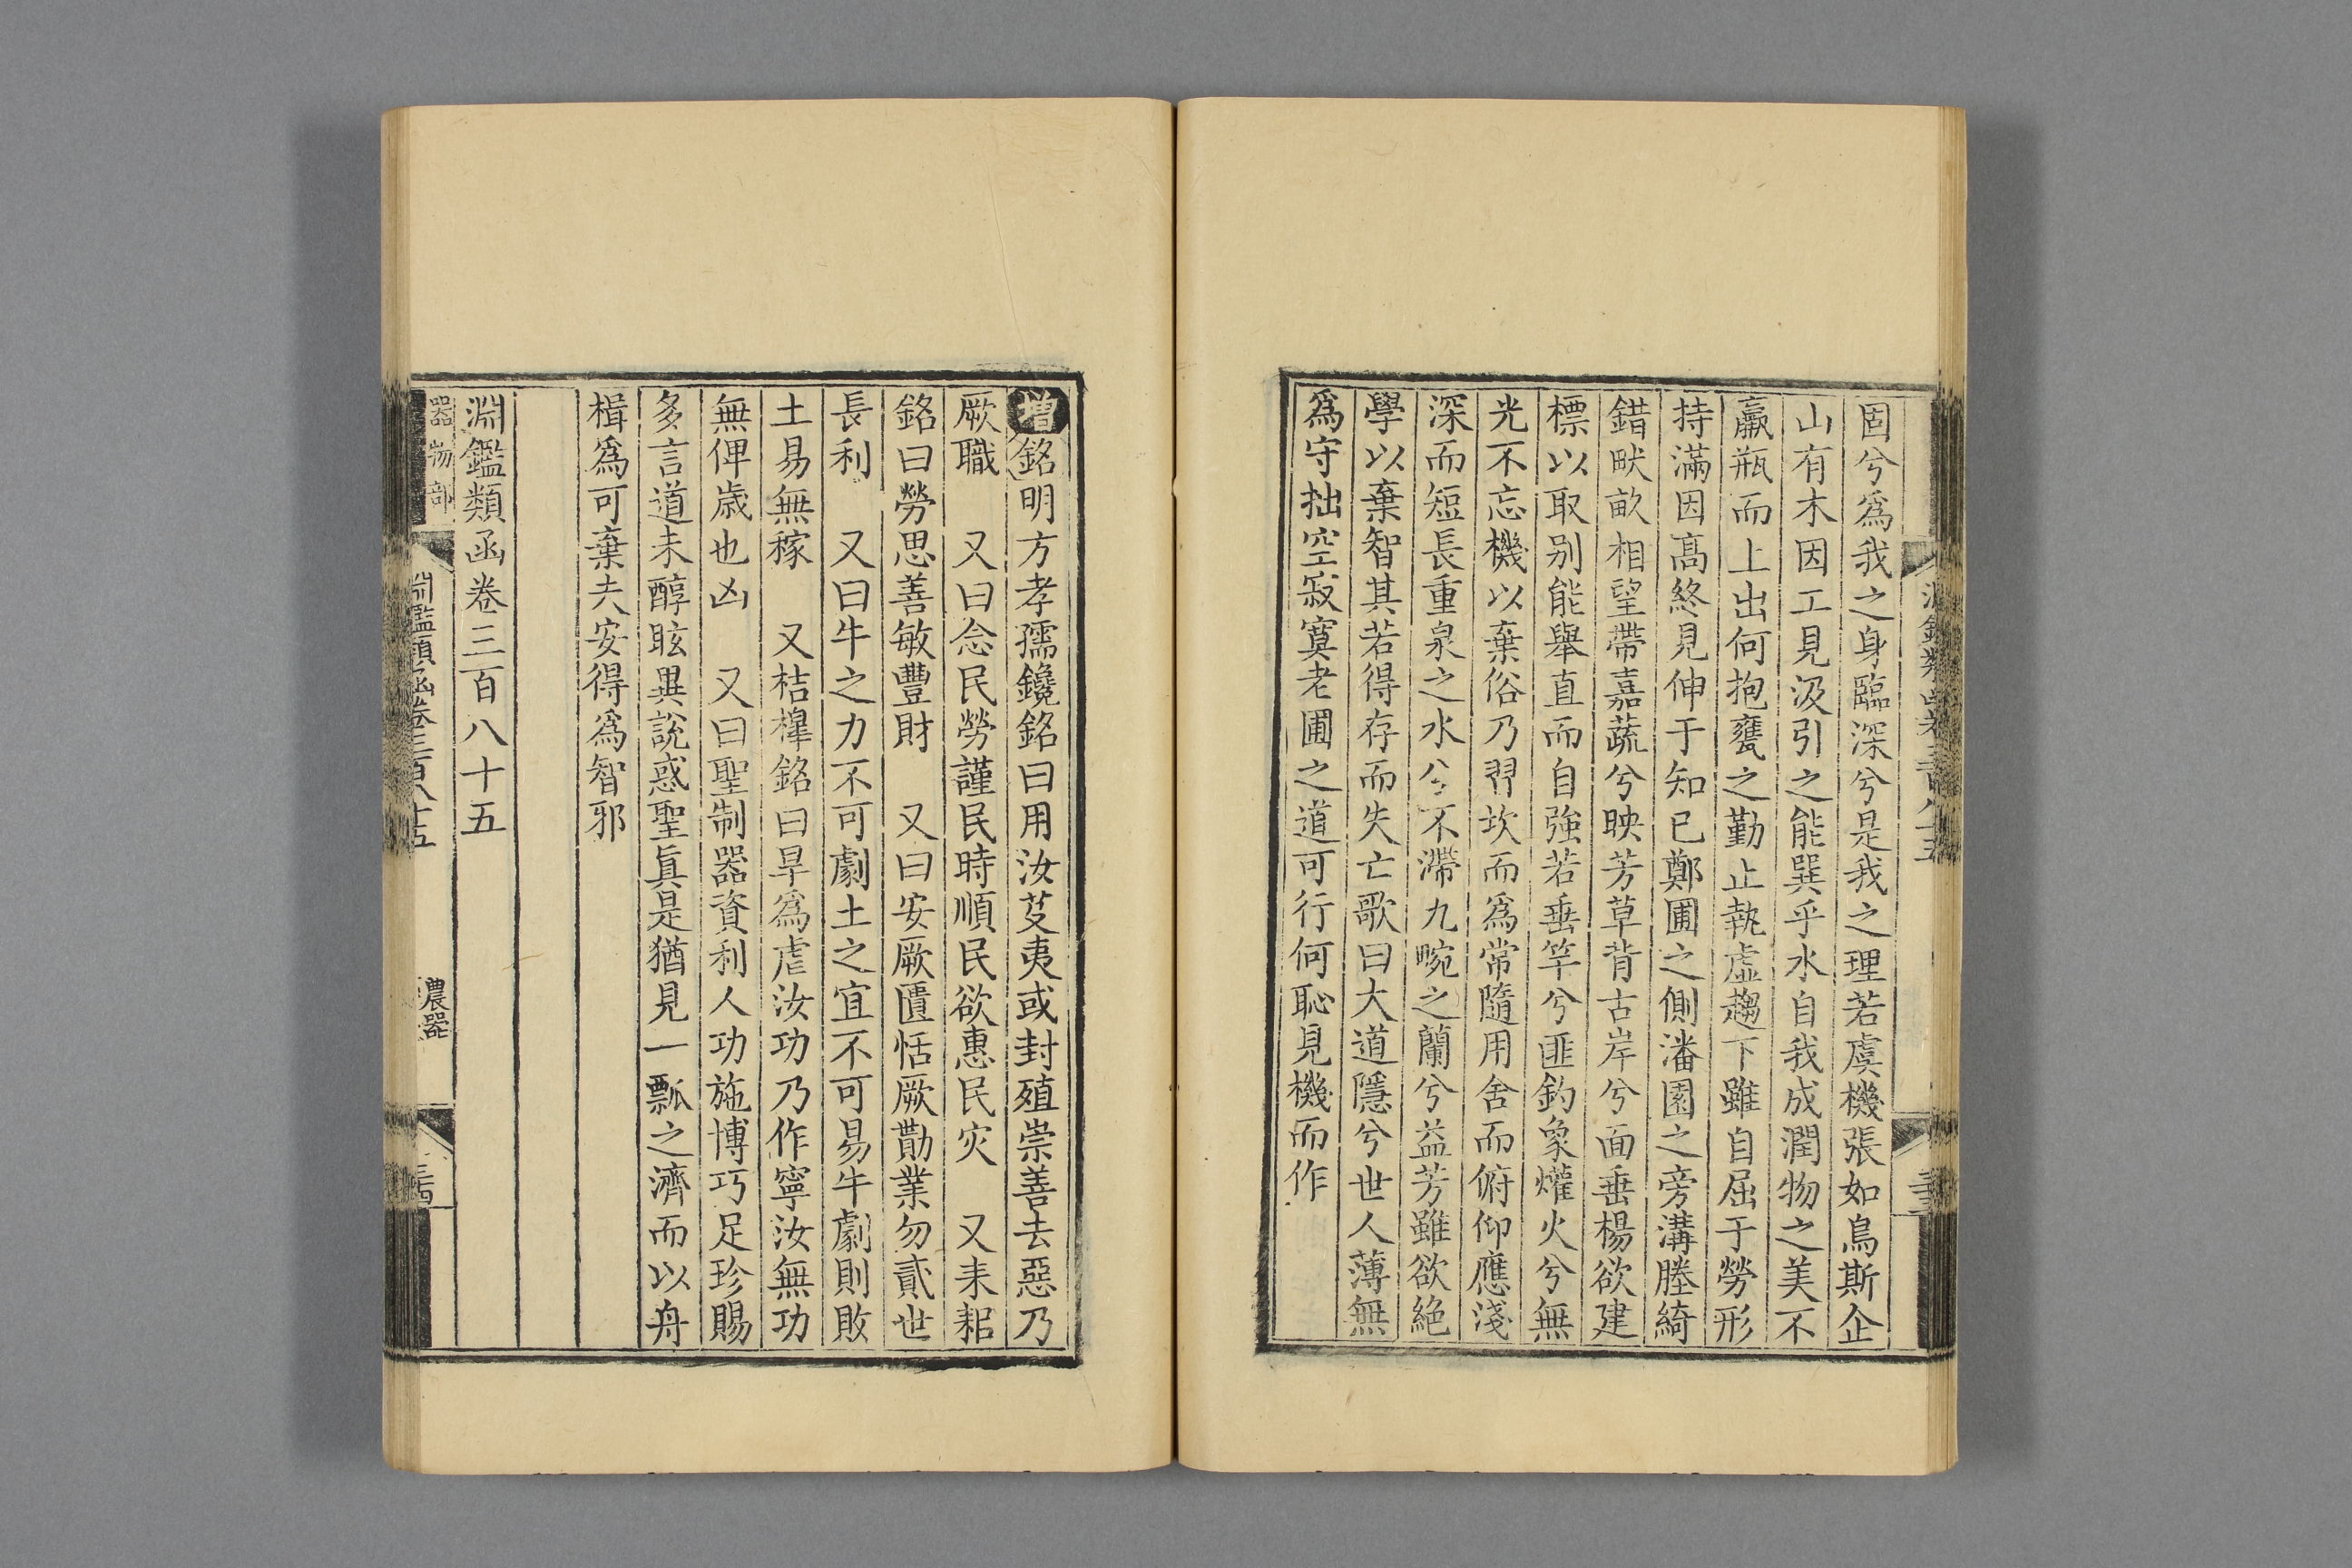 固兮爲我之身臨深兮是我之理若虞機張如鳥斯企
山有木因工見汲引之能巽乎水自我成潤物之美不
羸瓶而上出何抱甕之勤止執虛趨下雖自屈于勞形
持滿因高終見伸于知已鄭圃之側潘園之旁溝塍綺
錯畎畝相望帶嘉蔬兮映芳草背古岸兮面垂楊欲建
標以取别能舉直而自強若垂竿兮匪釣象爟火兮無
光不忘機以棄俗乃習坎而爲常隨用舍而俯仰應淺
深而短長重泉之水兮不滯九畹之蘭兮益芳雖欲絕
學以棄智其若得存而失亡歌曰大道隱兮世人薄無
爲守拙空寂寞老圃之道可行何恥見機而作
增銘明方孝孺鑱銘曰用汝芟夷或封殖崇善去惡乃
厥職 又曰念民勞謹民時順民欲惠民灾 又耒耜
銘曰勞思善敏豐財 又曰安厥匱恬厥勩業勿貳世
長利 又曰牛之力不可劇土之宜不可易牛劇則敗
土易無稼 又桔槹銘曰旱爲虐汝功乃作寧汝無功
無俾歳也凶 又曰聖制器資利人功施博巧足珍賜
多言道未醇眩異說惑聖眞是猶見一瓢之濟而以舟
楫爲可棄夫安得爲智邪
淵鑑類函卷三百八十五
器物部
淵鑑類函卷三百八十五
農器